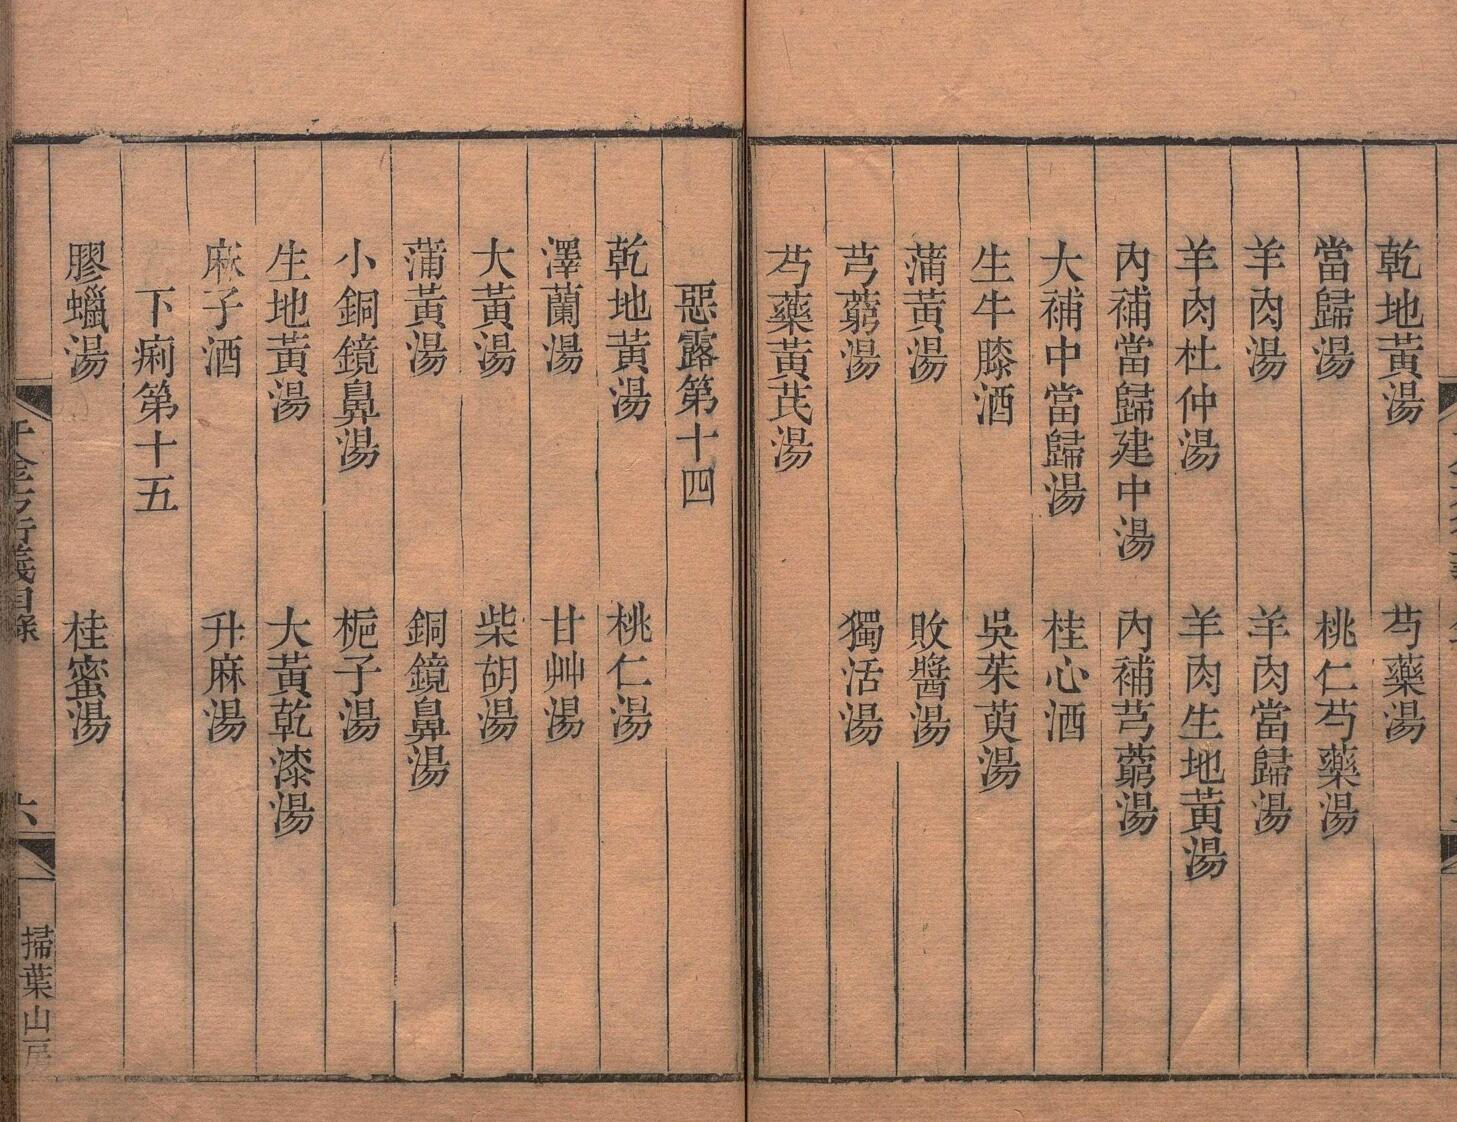 乾地黃湯　芍藥湯
當歸湯　桃仁芍藥湯
羊肉湯　羊肉當歸湯
羊肉杜仲湯　羊肉生地黃湯
內補當歸建中湯　內補芎藭湯
大補中當歸湯　桂心酒
生牛膝酒　吳茱萸湯
蒲黃湯　敗醬湯
芎藭湯　獨活湯
芍藥黃芪湯
惡露第十四
乾地黃湯　桃仁湯
澤蘭湯　甘艸湯
大黃湯　柴胡湯
蒲黃湯　銅鏡鼻湯
小銅鏡鼻湯　梔子湯
生地黃湯　大黃乾漆湯
麻子酒　升麻湯
下痢第十五
膠蠟湯　桂蜜湯
千金方衍義目錄　六　掃葉山房